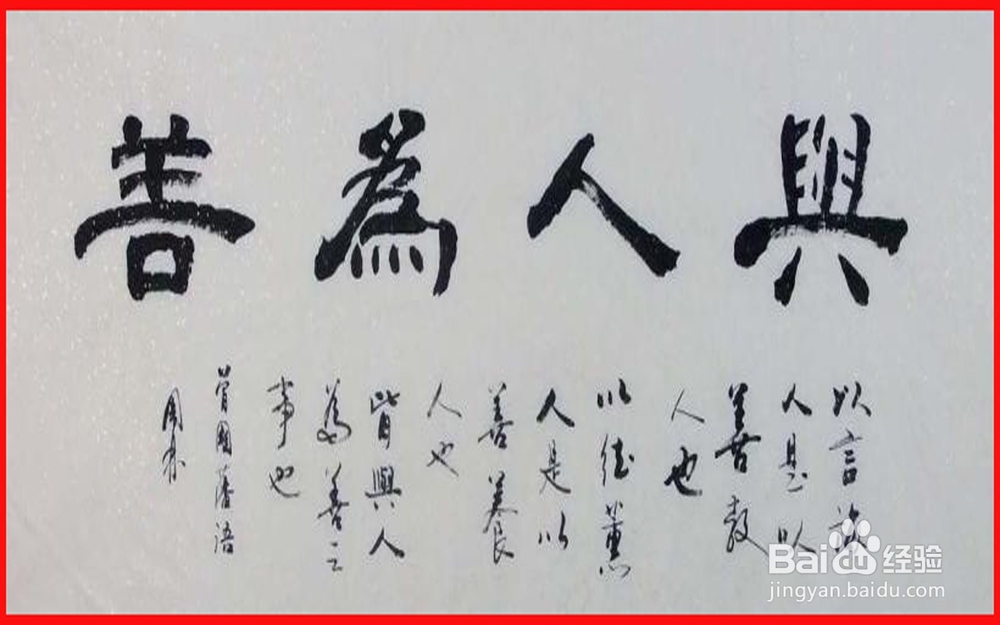 與人為善
以言诲
人是以
善教
人也
以德薰
人是以
善養
人也
皆與人
為善之
事也
曾國藩语
Baidu经验
jingyan.baidu.com